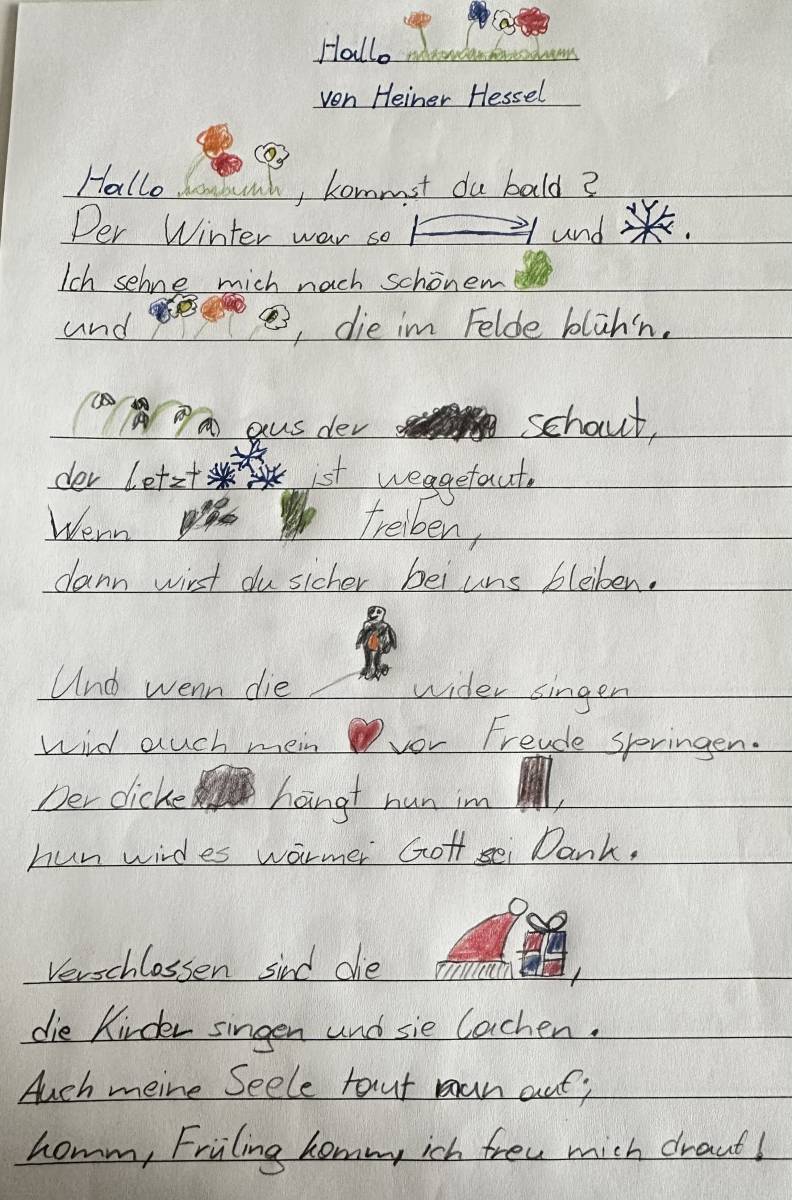 Hallo
von Heiner Hessel
Hallo , kommst du bald?
Der Winter war so und .
Ich sehne mich nach schönem
und , die im Felde blüh'n.
aus der schaut,
der letzt ist weggetaut.
Wenn treiben,
dann wirst du sicher bei uns bleiben.
Und wenn die wider singen
wird auch mein vor Freude springen.
Der dicke hängt nun im ,
nun wird es wärmer Gott sei Dank.
Verschlossen sind die ,
die Kinder singen und sie lachen.
Auch meine Seele taut nun auf;
komm, Früling komm, ich freu mich drauf!